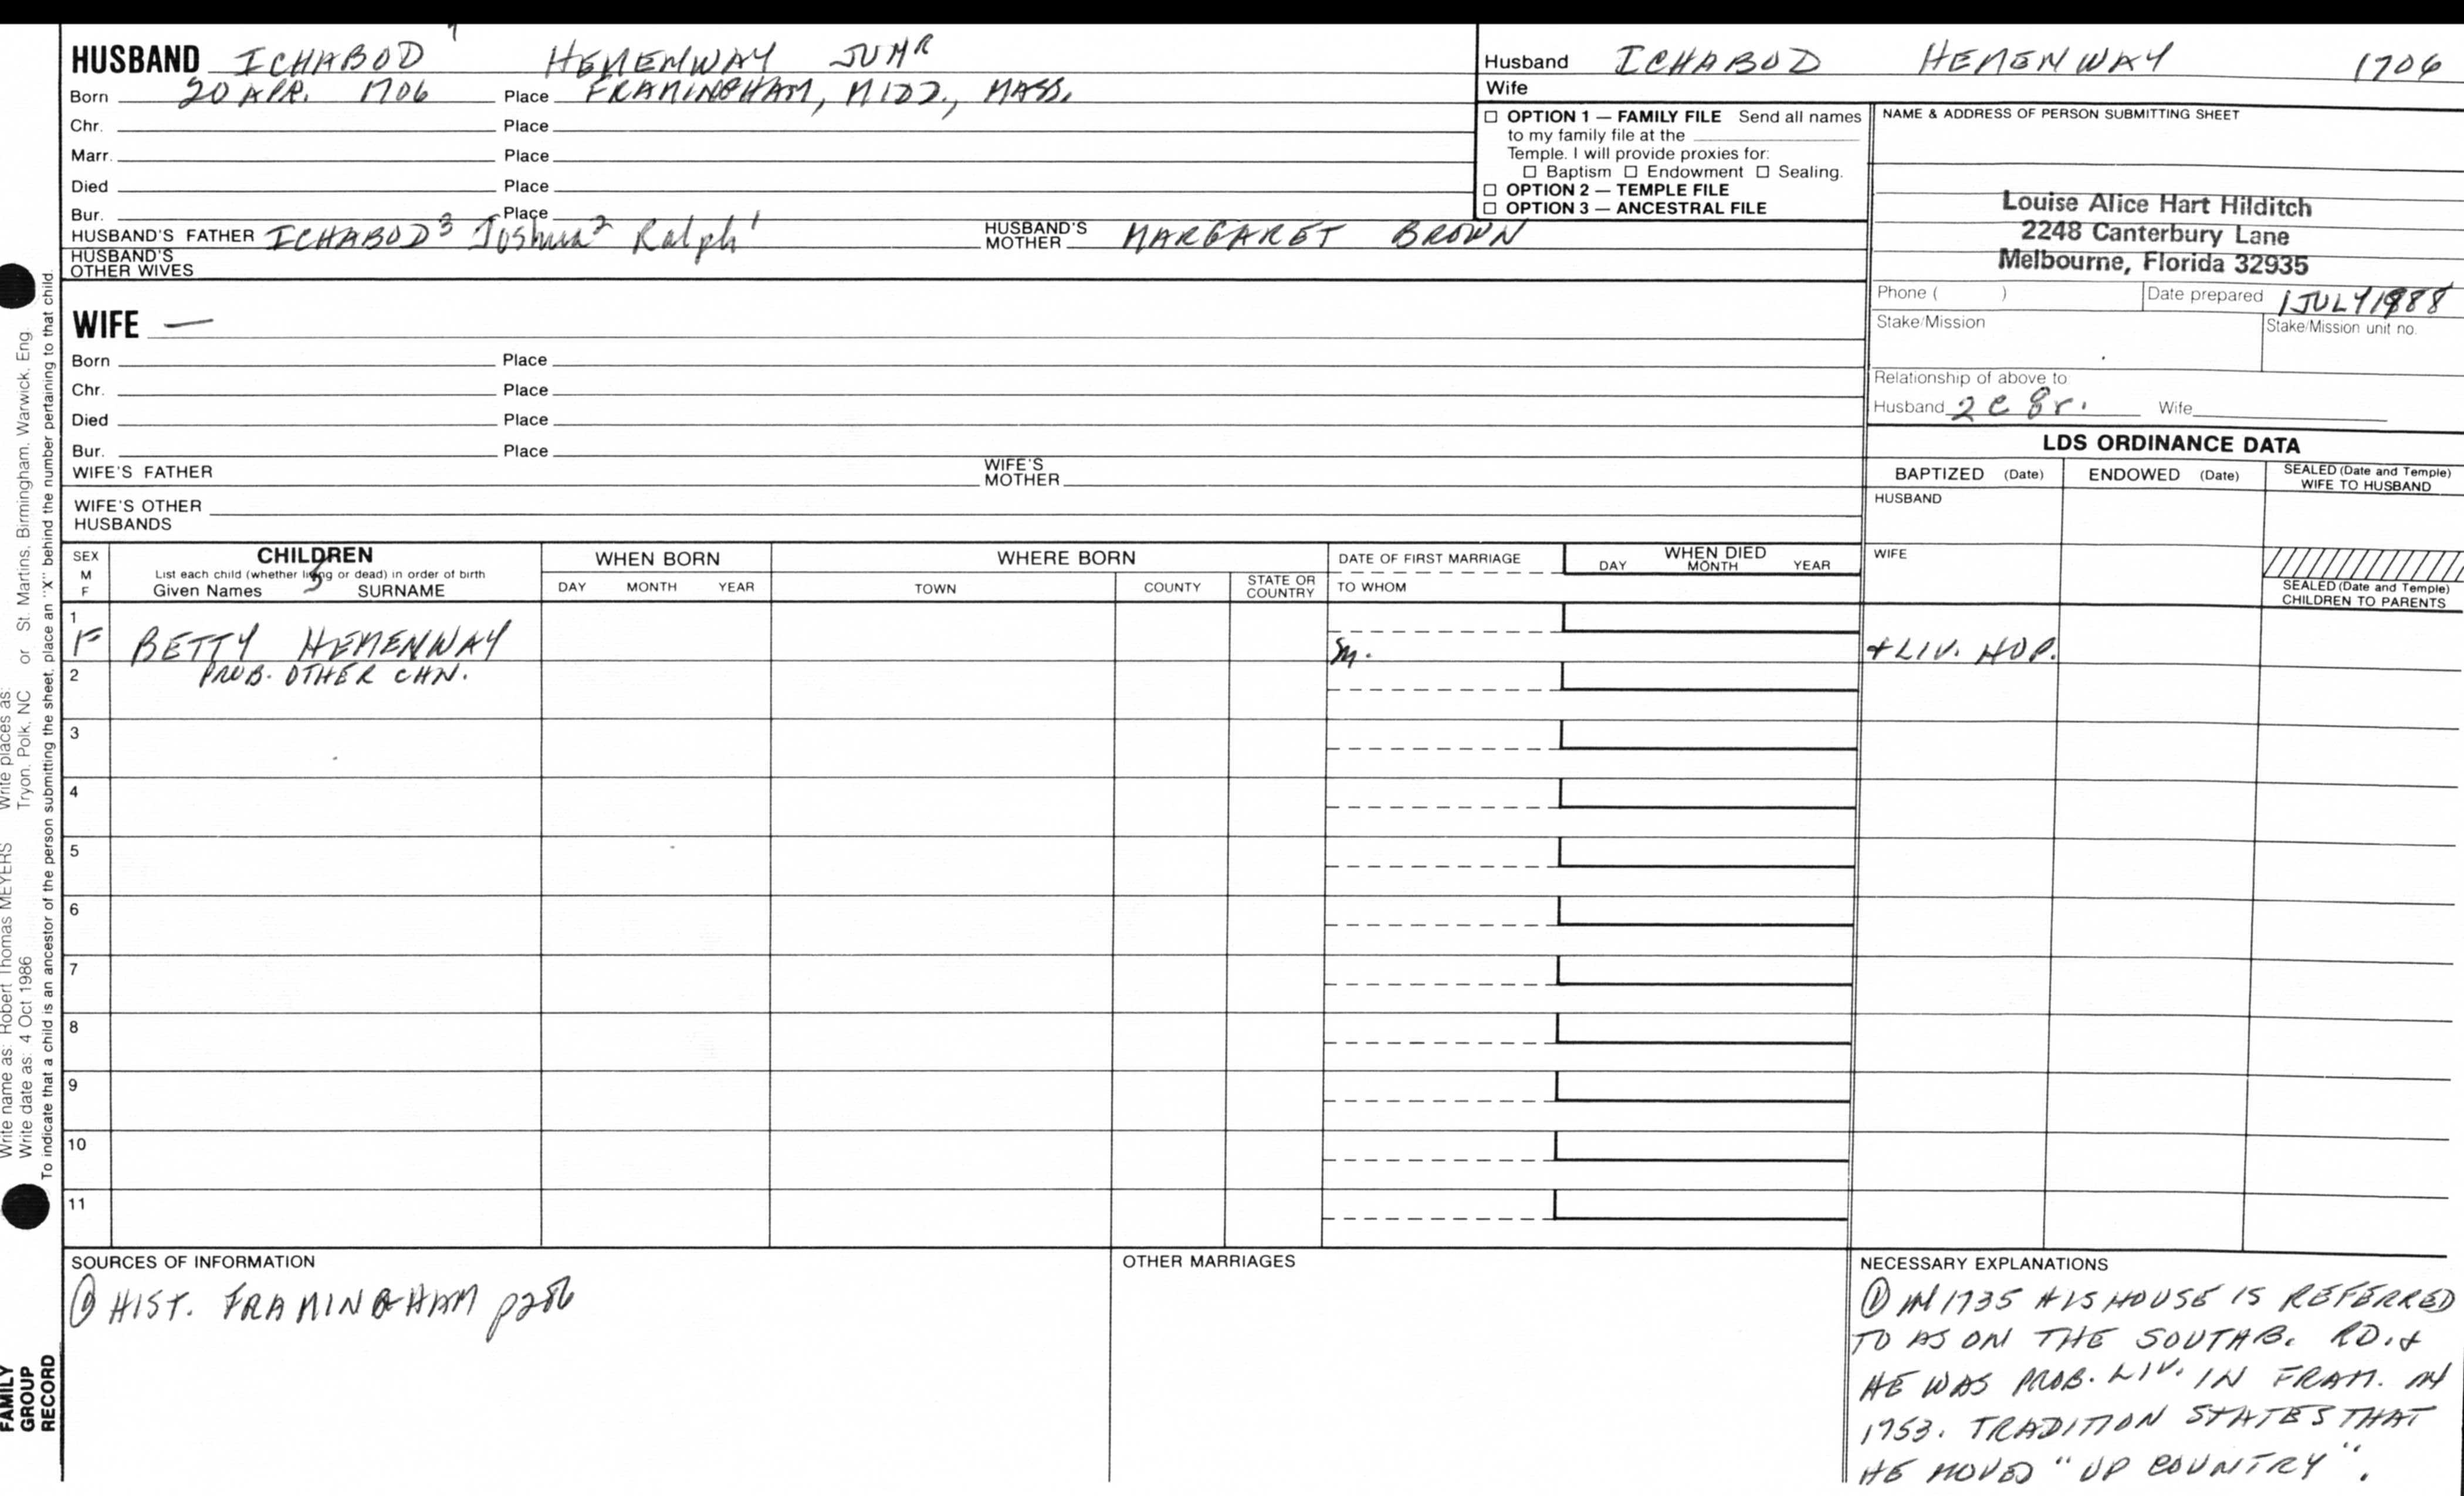 HUSBAND ICHABOD HEMENWAY JUNR
Born 20 APR. 1706 Place FRAMINGHAM, MIDD., MASS.
Chr. Place
Marr. Place
Died Place
Bur. Place
HUSBAND'S FATHER ICHABOD3 Joshua2 Ralph1 HUSBAND'S MOTHER MARGARET BROWN
HUSBAND'S OTHER WIVES
WIFE —
Born Place
Chr. Place
Died Place
Bur. Place
WIFE'S FATHER WIFE'S MOTHER
WIFE'S OTHER HUSBANDS
Husband ICHABOD HEMENWAY 1706
Wife
☐ OPTION 1 — FAMILY FILE Send all names
to my family file at the
Temple. I will provide proxies for:
☐ Baptism ☐ Endowment ☐ Sealing.
☐ OPTION 2 — TEMPLE FILE
☐ OPTION 3 — ANCESTRAL FILE
NAME & ADDRESS OF PERSON SUBMITTING SHEET
Louise Alice Hart Hilditch
2248 Canterbury Lane
Melbourne, Florida 32935
Phone ( ) Date prepared 1 JULY 1988
Stake/Mission Stake/Mission unit no.
Relationship of above to
Husband 2 C 8r. Wife
LDS ORDINANCE DATA
BAPTIZED (Date) ENDOWED (Date) SEALED (Date and Temple) WIFE TO HUSBAND
HUSBAND
WIFE
SEALED (Date and Temple) CHILDREN TO PARENTS
SEX M F
CHILDREN
List each child (whether living or dead) in order of birth
Given Names SURNAME
WHEN BORN
DAY MONTH YEAR
WHERE BORN
TOWN COUNTY STATE OR COUNTRY
DATE OF FIRST MARRIAGE
TO WHOM
WHEN DIED
DAY MONTH YEAR
1
F BETTY HEMENWAY m. + LIV. HOP.
2 PROB. OTHER CHN.
3
4
5
6
7
8
9
10
11
SOURCES OF INFORMATION
① HIST. FRAMINGHAM p286
OTHER MARRIAGES
NECESSARY EXPLANATIONS
① IN 1735 HIS HOUSE IS REFERRED
TO AS ON THE SOUTHB. RD. &
HE WAS PROB. LIV. IN FRAM. IN
1753. TRADITION STATES THAT
HE MOVED "UP COUNTRY".
Write name as: Robert Thomas MEYERS Write places as:
Write date as: 4 Oct 1986 Tryon, Polk, NC or St. Martins, Birmingham, Warwick, Eng.
To indicate that a child is an ancestor of the person submitting the sheet, place an "X" behind the number pertaining to that child.
FAMILY
GROUP
RECORD